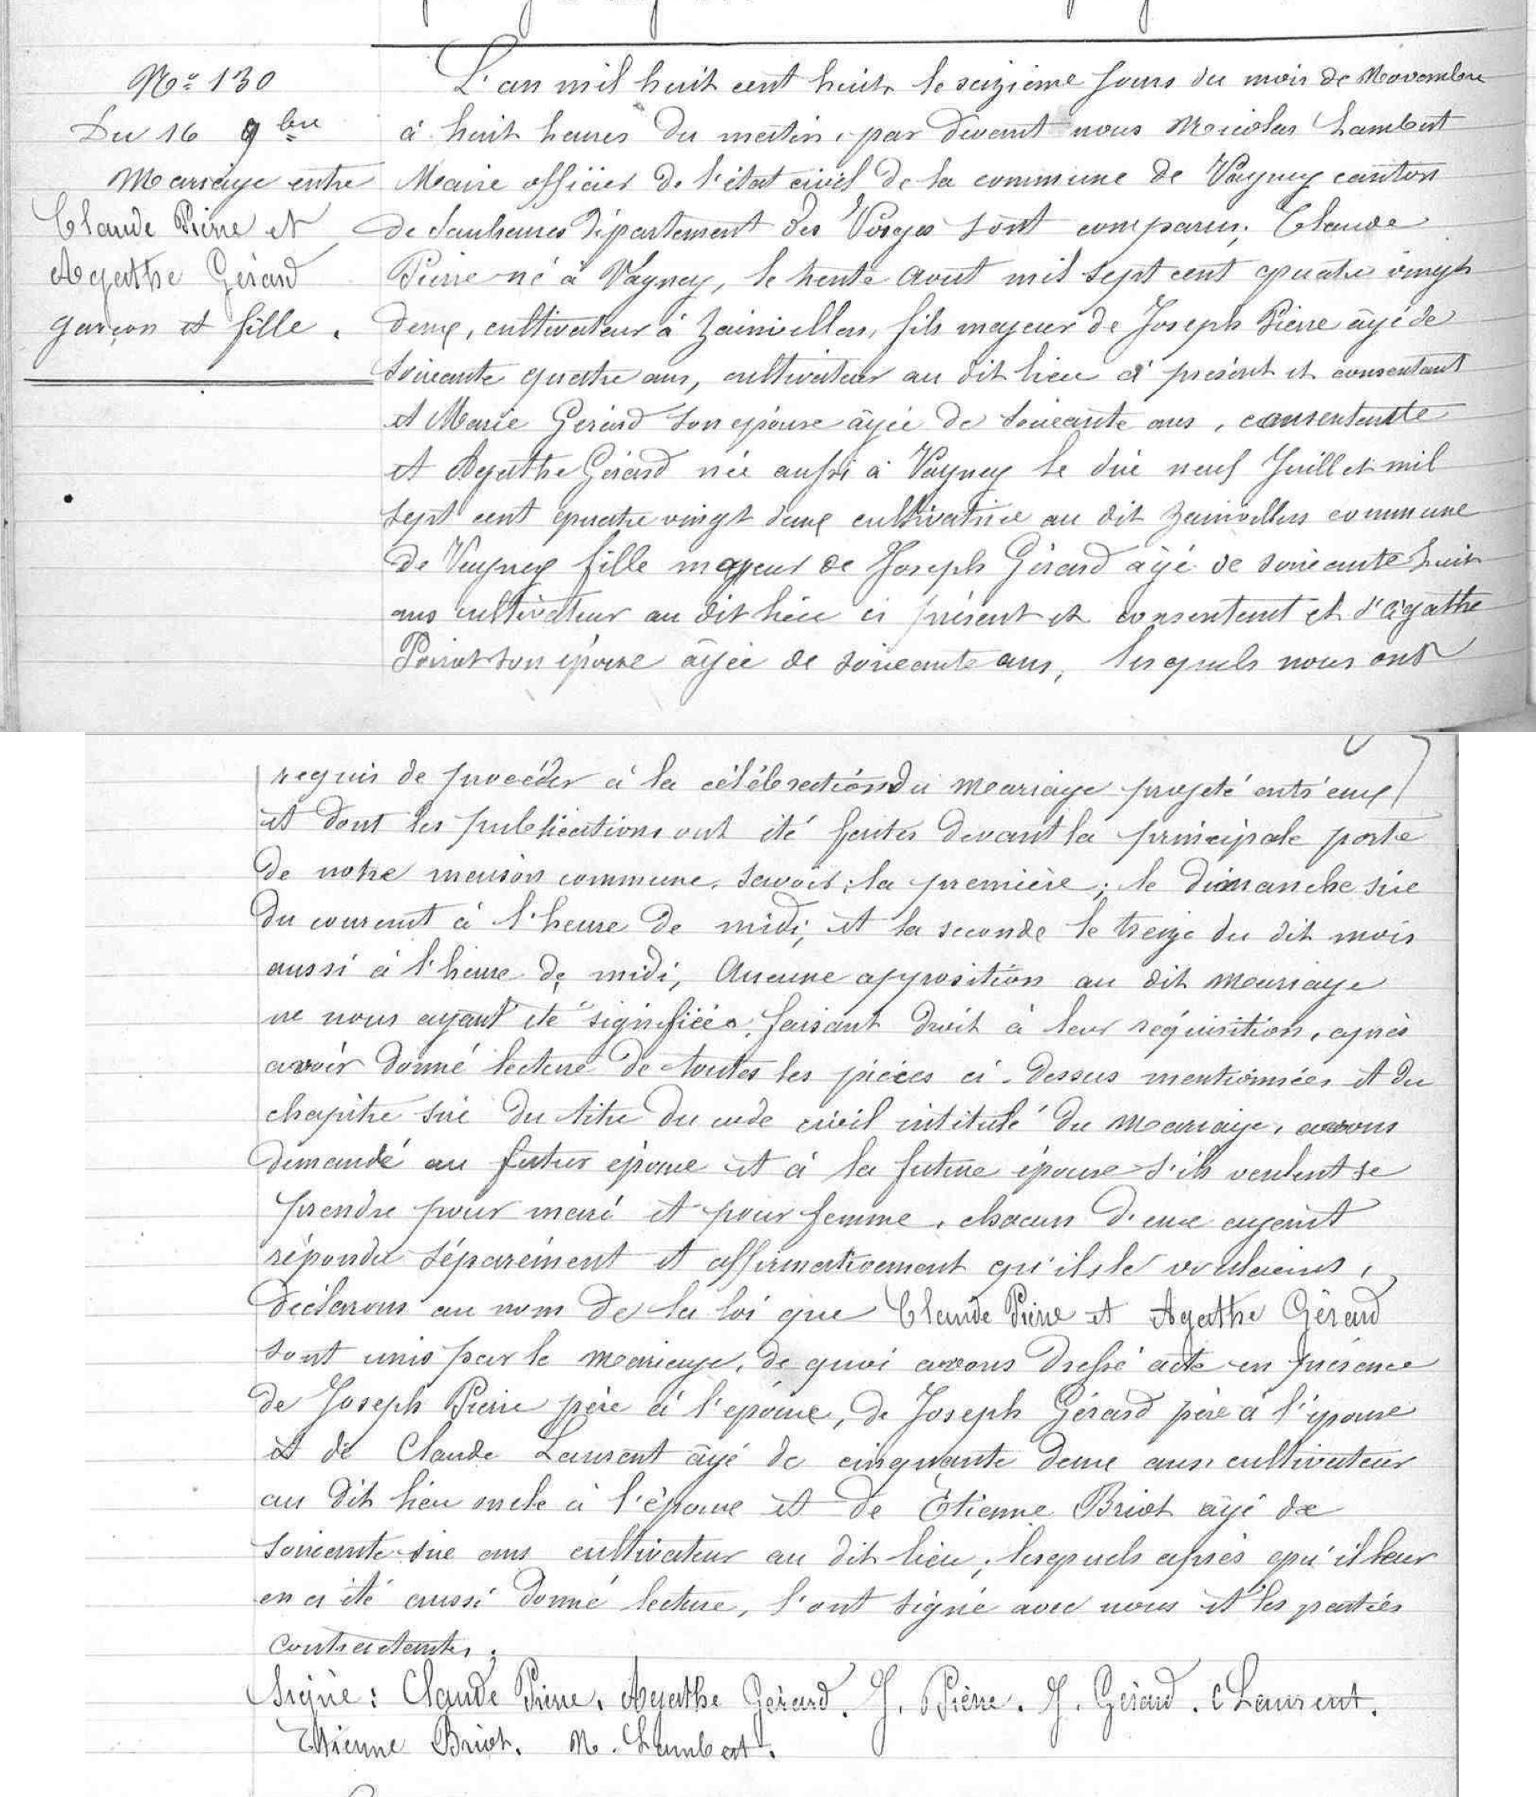 No 130
Du 16 9bre
Mariage entre
Claude Pierre et
Agathe Gérard
garçon et fille.
L'an mil huit cent huit le seizième jour du mois de Novembre
à huit heures du matin, par devant nous Nicolas Lambert
Maire officier de l'état civil de la commune de Vagney canton
de Saulxures département des Vosges sont comparus, Claude
Pierre né à Vagney, le trente Aout mil sept cent quatre vingt
deux, cultivateur à Zainvillers, fils majeur de Joseph Pierre âgé de
soixante quatre ans, cultivateur au dit lieu ci présent et consentant
et Marie Gérard son épouse âgée de soixante ans, consentante
et Agathe Gérard née aussi à Vagney le dix neuf Juillet mil
sept cent quatre vingt deux cultivatrice au dit Zainvillers commune
de Vagney fille majeur de Joseph Gérard âgé de soixante huit
ans cultivateur au dit lieu ci présent et consentent et d'Agathe
Poirot son épouse âgée de soixante ans, lesquels nous ont
requis de procéder à la célébration du mariage projeté entr'eux
et dont les publications ont été faites devant la principale porte
de notre maison commune, savoir; la première; le dimanche six
du courant à l'heure de midi, et la seconde le treize du dit mois
aussi à l'heure de midi, Aucune opposition au dit mariage
ne nous ayant été signifiée. faisant droit à leur réquisition, après
avoir donné lecture de toutes les pièces ci-dessus mentionnées et du
chapitre six du titre du code civil intitulé du mariage, avons
demandé au futur époux et à la future épouse s'ils veulent se
prendre pour mari et pour femme, chacun d'eux ayant
répondu séparément et affirmativement qu'ils le voulaient,
déclarons au nom de la loi que Claude Pierre et Agathe Gérard
sont unis par le mariage, de quoi avons dressé acte en présence
de Joseph Pierre père à l'époux, de Joseph Gérard père à l'épouse
et de Claude Laurent âgé de cinquante deux ans, cultivateur
au dit lieu oncle à l'époux et de Étienne Briot âgé de
soixante six ans cultivateur au dit lieu, lesquels après qu'il leur
en a été aussi donné lecture, l'ont signé avec nous et les parties
contractantes.
Signé: Claude Pierre, Agathe Gérard. J. Pierre. J. Gérard. C Laurent.
Etienne Briot. N. Lambert.